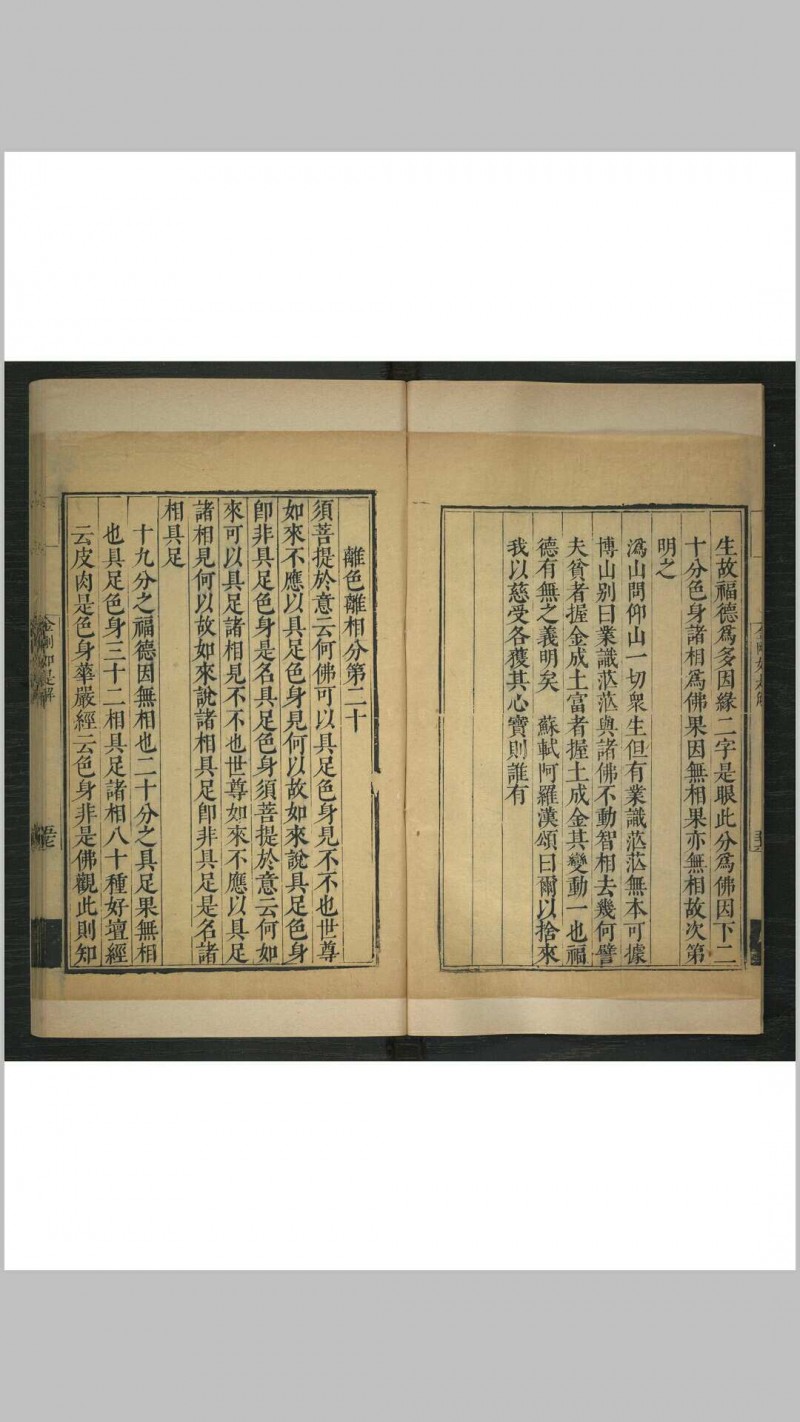 生故福德爲多因緣二字是眼此分爲佛因下二
十分色身諸相爲佛果因無相果亦無相故次第
明之
溈山問仰山一切衆生但有業識茫茫無本可據
博山别曰業識茫茫與諸佛不動智相去幾何譬
夫貧者握金成土富者握土成金其變動一也福
德有無之義明矣　蘇軾阿羅漢頌曰爾以捨來
我以慈受各獲其心寶則誰有
離色離相分第二十
須菩提於意云何佛可以具足色身見不不也世尊
如來不應以具足色身見何以故如來說具足色身
卽非具足色身是名具足色身須菩提於意云何如
來可以具足諸相見不不也世尊如來不應以具足
諸相見何以故如來說諸相具足卽非具足是名諸
相具足
十九分之福德因無相也二十分之具足果無相
也具足色身三十二相具足諸相八十種好壇經
云皮肉是色身華嚴經云色身非是佛觀此則知
金剛如是解